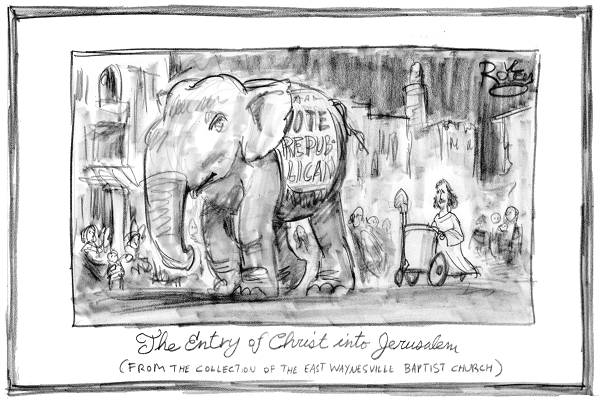 VOTE
REPUB-
LICAN
The Entry of Christ into Jerusalem
(FROM THE COLLECTION OF THE EAST WAYNESVILLE BAPTIST CHURCH)